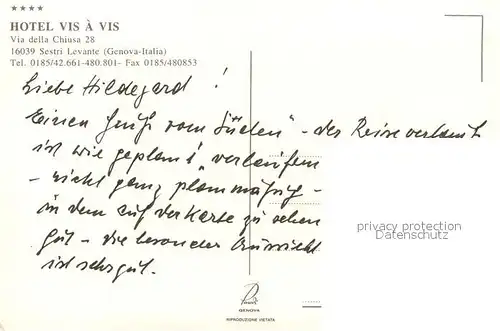 ★★★★
HOTEL VIS À VIS
Via della Chiusa 28
16039 Sestri Levante (Genova-Italia)
Tel. 0185/42.661-480.801- Fax 0185/480853
Liebe Hildegard !
Einen Gruß vom Süden" - der Reiseverlauf
ist wie geplant verlaufen
- nicht ganz planmäßig -
in dem auf der Karte zu sehen
gut - die besondere Aussicht
ist sehr gut.
privacy protection
Datenschutz
GENOVA
RIPRODUZIONE VIETATA